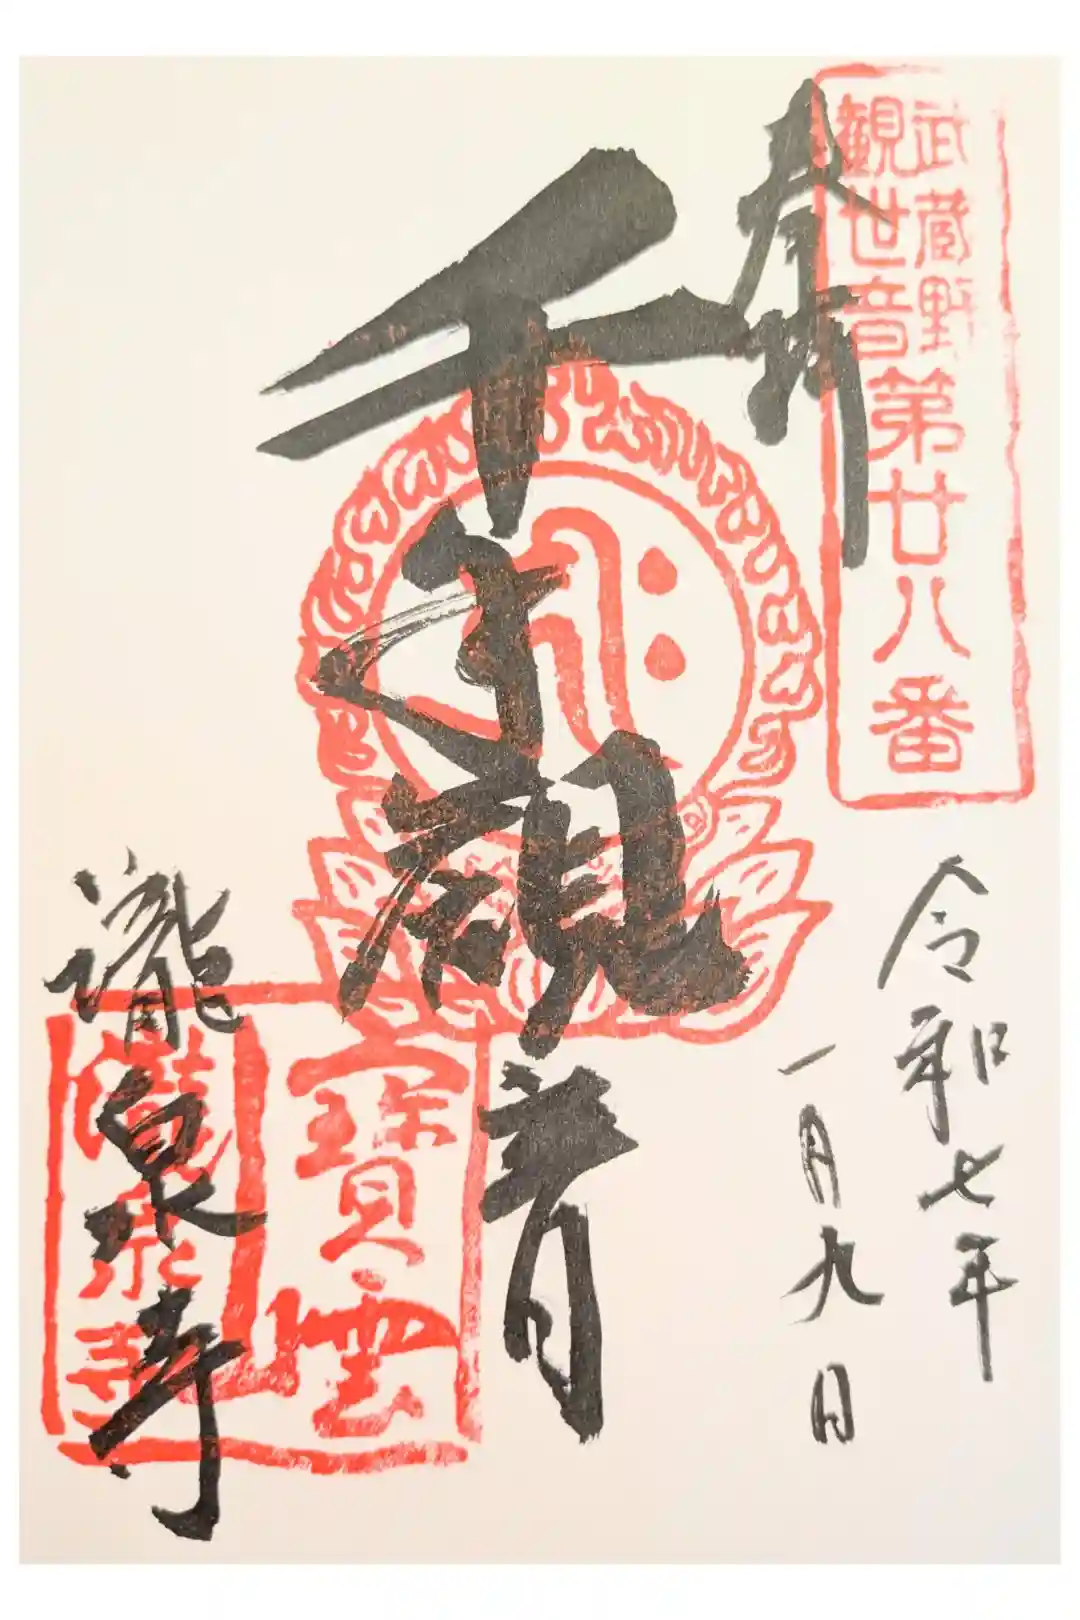 武蔵野
観世音
第廿八番
奉拝
令和七年
一月九日
千手観音
寳雲
瀧泉寺
瀧泉寺